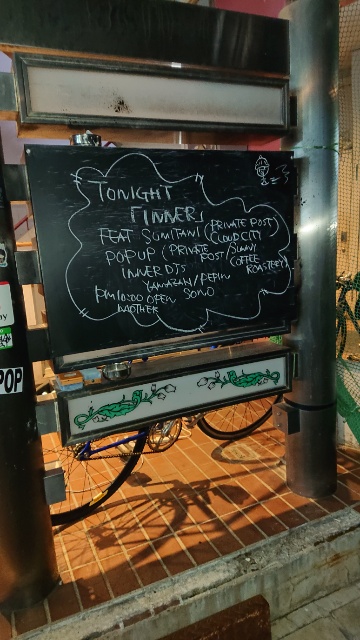 TONIGHT
『INNER』
FEAT SUMITANI (PRIVATE POST/
CLOUD CITY)
POPUP (PRIVATE POST/SUNNY
COFFEE
ROASTERY)
INNER DJs
YAMAZAKI/PEPIN
PM10:00 OPEN SONO
MOTHER
POP